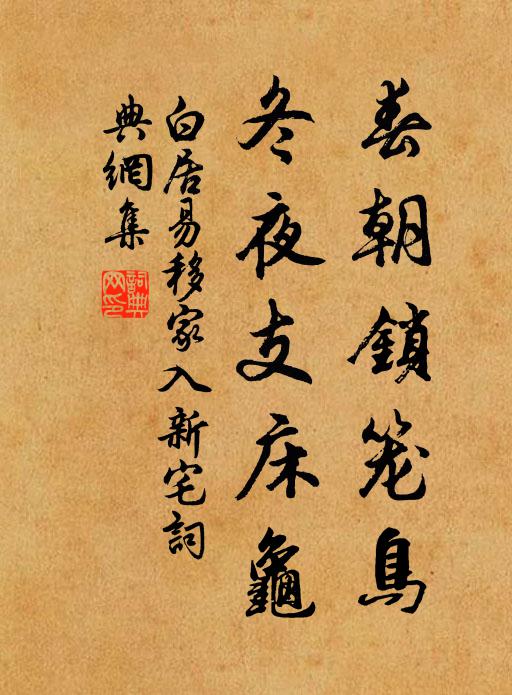 春朝鎖笼鳥
冬夜支床龜
白居易移家入新宅詞
典網集
詞典网印